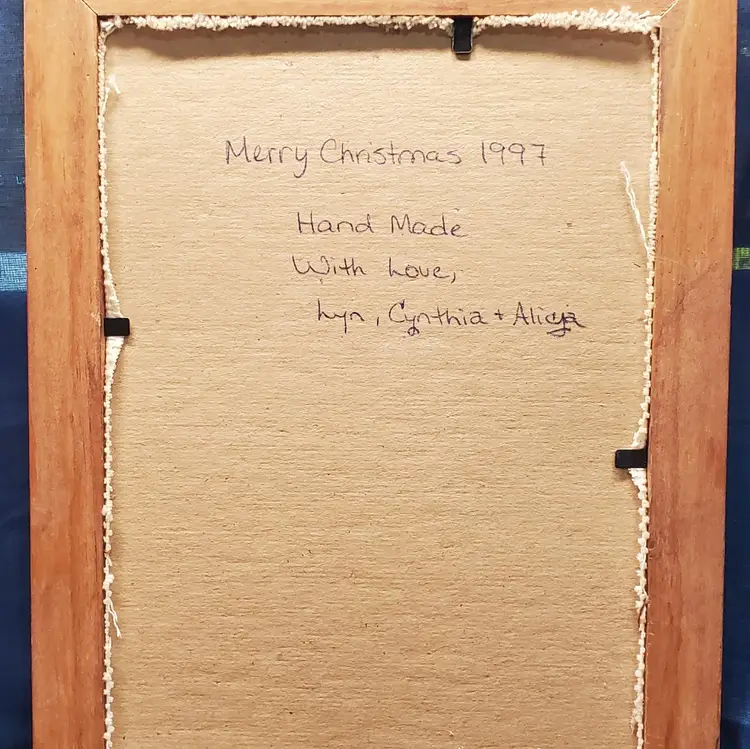 Merry Christmas 1997
Hand Made
With Love,
Lyn, Cynthia + Alicja